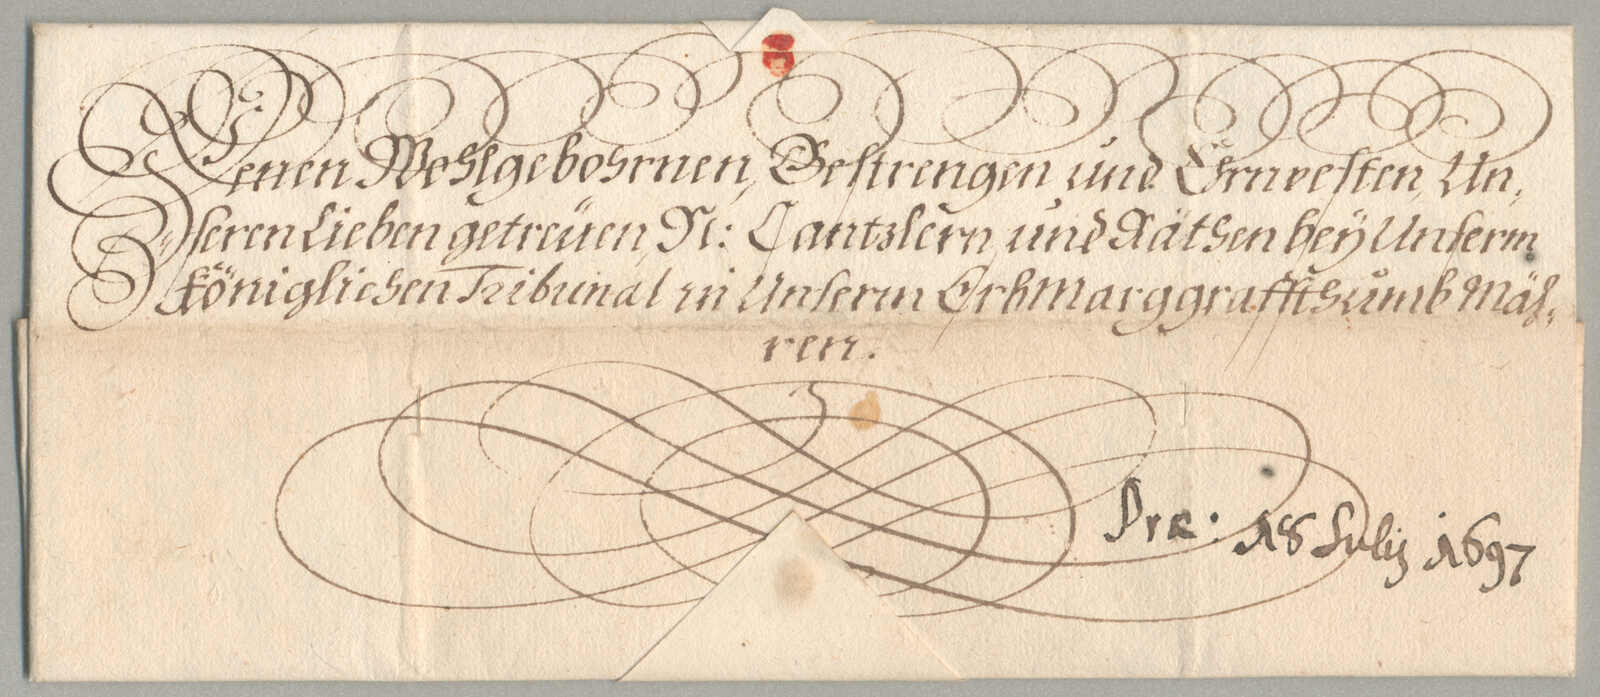 Denen Wohlgebohrnen, Gestrengen und Ehrnvesten, Un-
seren Lieben getreüen, N: Cantzlern, und Räthen bey Unserm
Königlichen Tribunal in Unserm ErbMarggraffthumb Mäh-
ren.
Præ: 18 Julij 1697